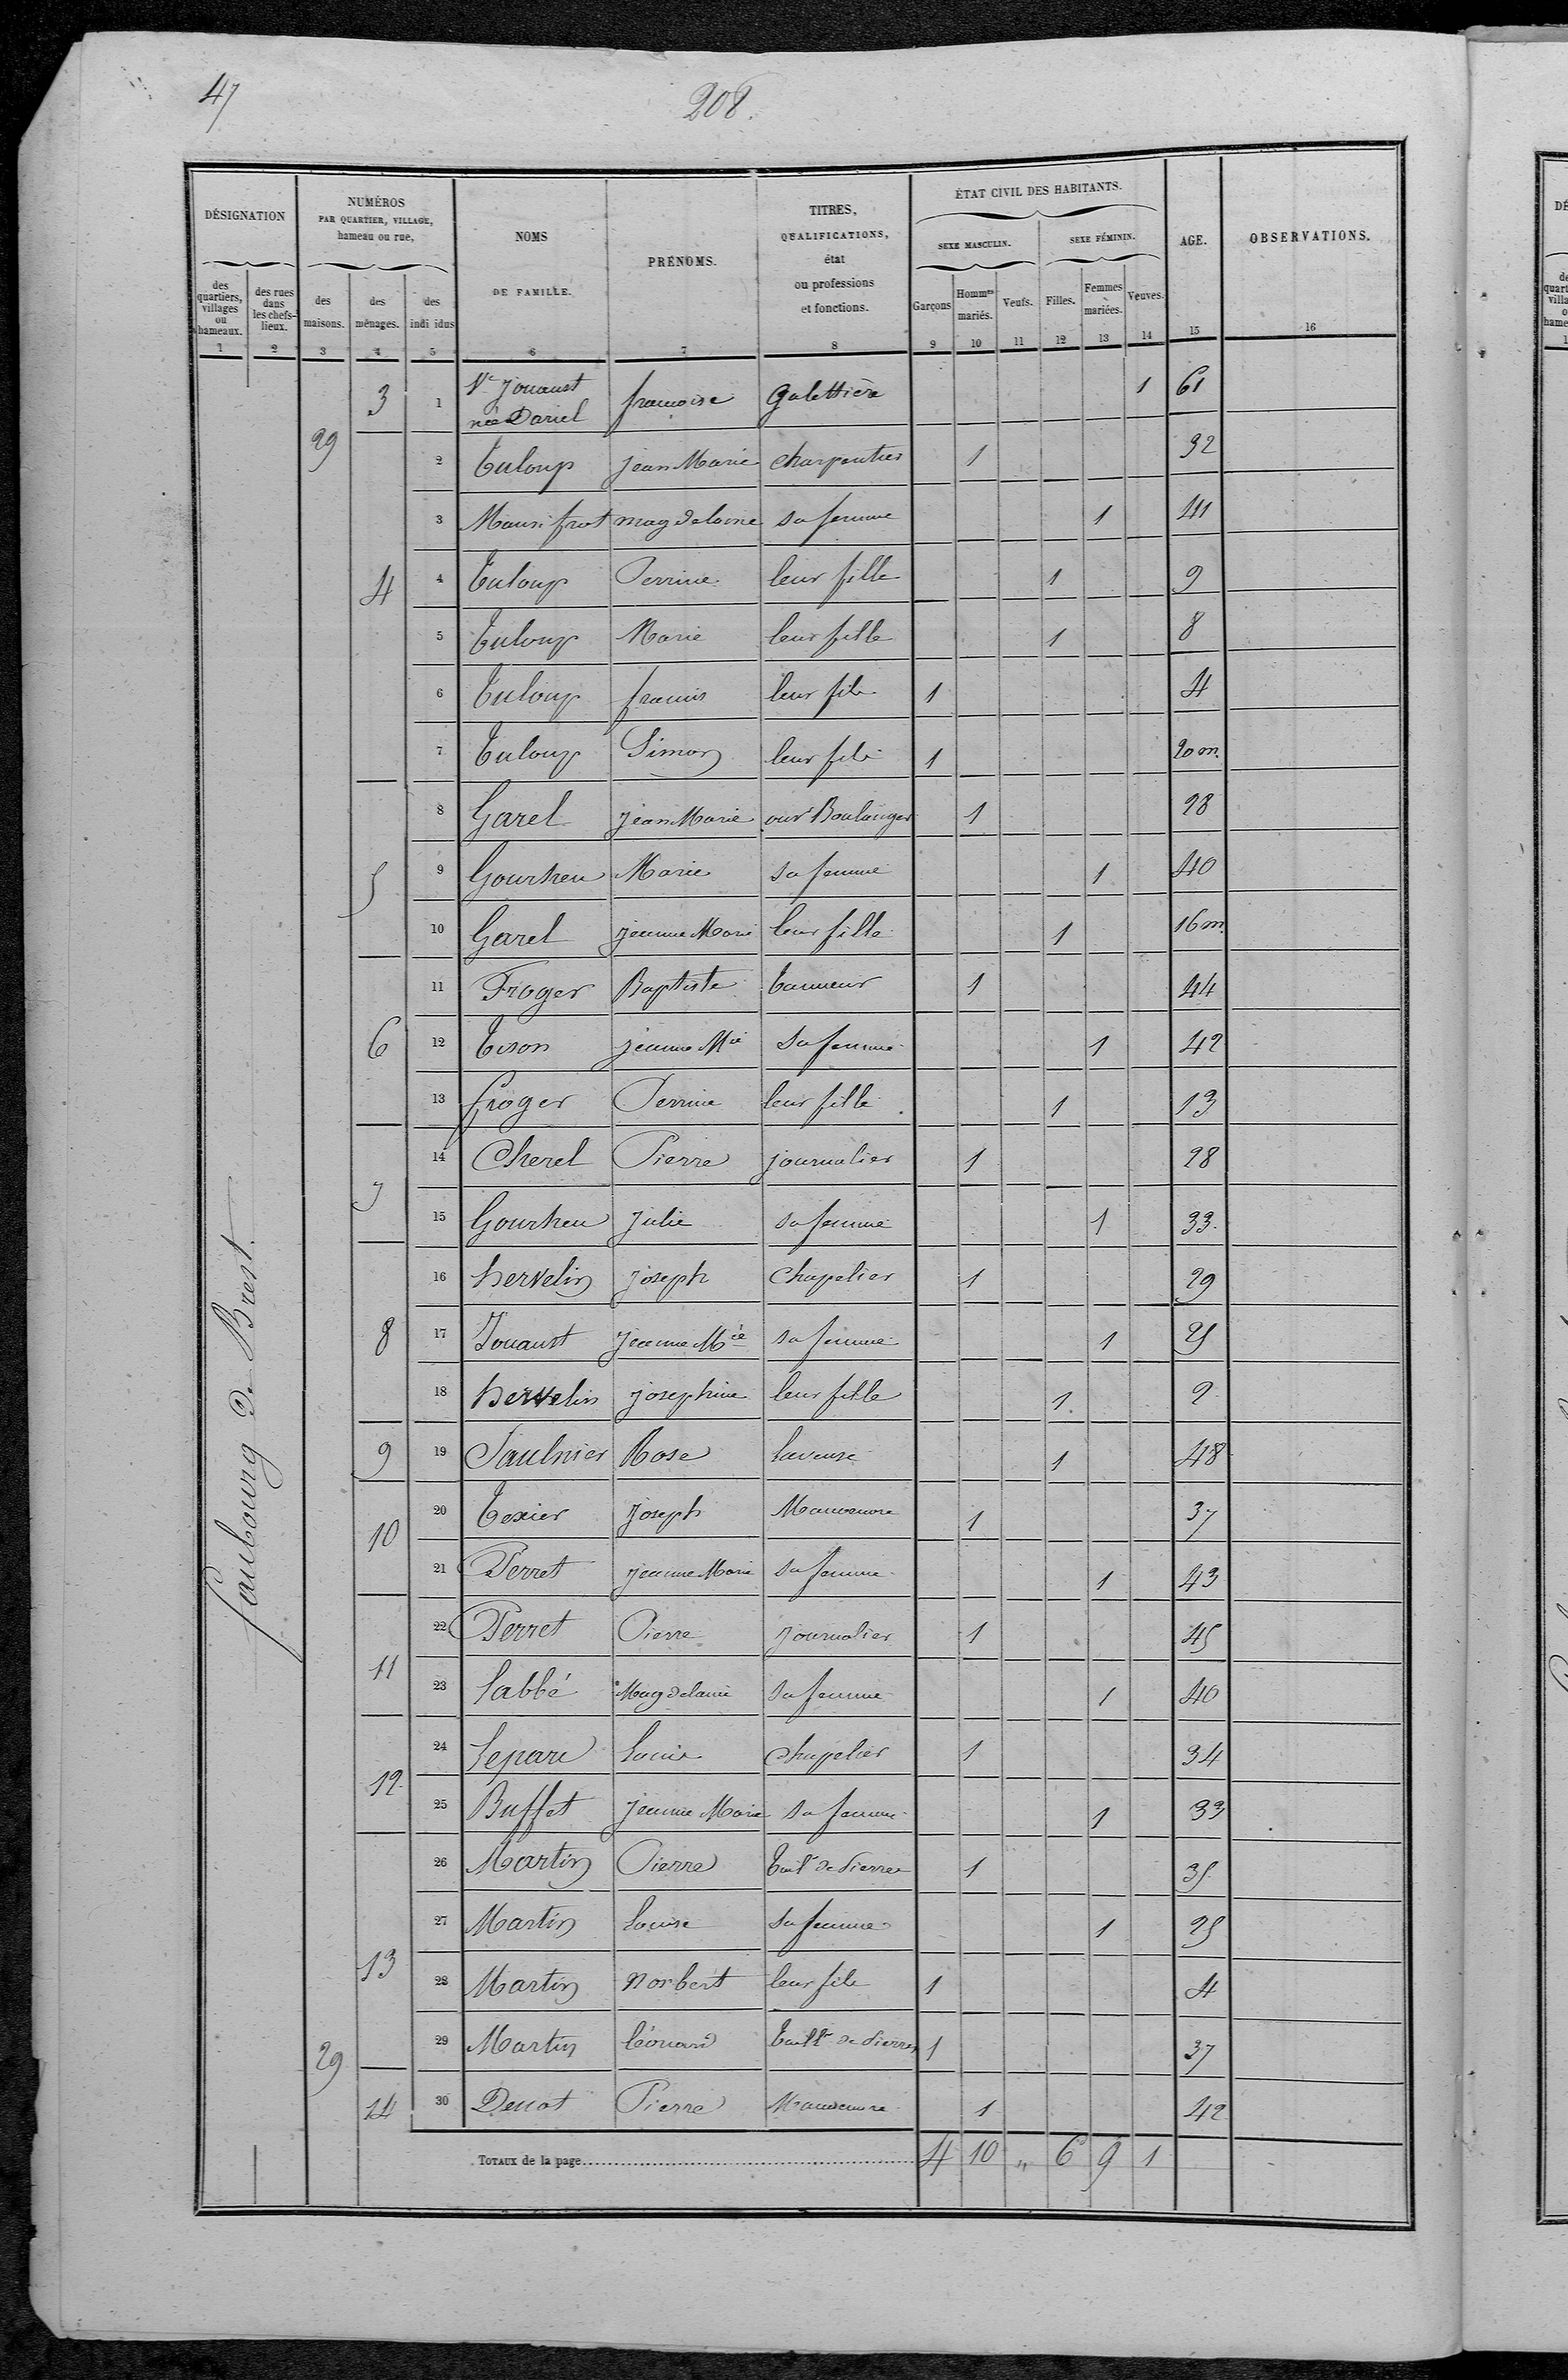 47
208.
DÉSIGNATION
NUMÉROS
PAR QUARTIER, VILLAGE,
hameau ou rue,
NOMS
DE FAMILLE.
PRÉNOMS.
TITRES,
QUALIFICATIONS,
état
ou professions
et fonctions.
ÉTAT CIVIL DES HABITANTS.
SEXE MASCULIN.
SEXE FÉMININ.
AGE.
OBSERVATIONS.
des quartiers, villages ou hameaux.
des rues dans les chefs-lieux.
des maisons.
des ménages.
des indi idus
Garçons
Hommes mariés.
Veufs.
Filles.
Femmes mariées.
Veuves.
1 2 3 4 5 6 7 8 9 10 11 12 13 14 15 16
faubourg de Brest
3 1 Ve Jouaust née Daniel francoise Galettière 1 61
29 2 Tuloup jean Marie charpentier 1 32
3 magdelaine sa femme 1 41
4 4 Tuloup Perrine leur fille 1 9
5 Tuloup Marie leur fille 1 8
6 Tuloup francis leur fils 1 4
7 Tuloup Simon leur fils 1 20 m.
8 Garel jean Marie ouvr Boulanger 1 28
5 9 Gourheu Marie sa femme 1 40
10 Garel jeanne Marie leur fille 1 16 m.
11 Froger Baptiste tanneur 1 44
6 12 Tison jeanne Mie sa femme 1 42
13 froger Perrine leur fille 1 13
14 Cherel Pierre journalier 1 28
7 15 Gourheu Julie sa femme 1 33.
16 hervelin Joseph Chapelier 1 29
8 17 Jouaust Jeanne Mie sa femme 1 25
18 hervelin josephine leur fille 1. 2
9 19 Saulnier Rose laveuse 1 48
10 20 Texier Joseph Manoeuvre 1 37
21 Perret jeanne Marie sa femme 1 43
22 Perret Pierre Journalier 1 45
11 23 Labbé Magdelaine sa femme 1 40
24 Separe Louis Chapelier 1 34
12 25 Buffet jeanne Marie sa femme 1 33
26 Martin Pierre Tailr de Pierres 1 35
27 Martin Louise sa femme 1 25
13 28 Martin Norbert leur fils 1 4
29 29 Martin Léonard Taillr de Pierres 1 37
14 30 Denot Pierre Manoeuvre 1 42
TOTAUX de la page 4 10 " 6 9 1